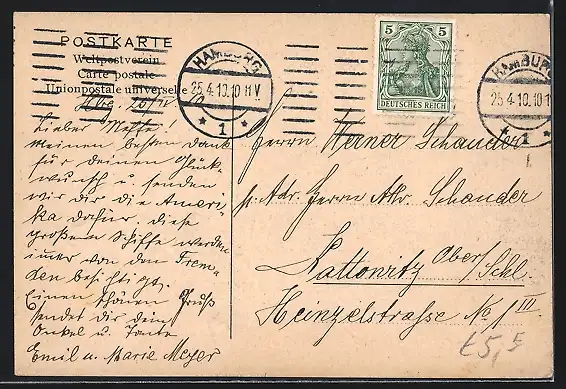 POSTKARTE
Weltpostverein
Carte postale
Union postale universelle
Hbg. 25/IV
Lieber Neffe
meinen besten Dank
für deinen Glück-
wunsch u. senden
wir dir die Ameri-
ka dafür, diese
großen Schiffe werden
immer von den Frem-
den besichtigt.
Einen schönen Gruß
sendet dir dein
Onkel u. Tante
Emil u. Marie Meyer
HAMBURG
25.4.10.10 11 V.
* 1 *
5 5
DEUTSCHES REICH
HAMBURG
25.4.10.10 1
* 1 *
Herrn Werner Schauder
p. Adr. Herrn Alw. Schauder
Kattowitz Ober/Schl.
Heinzelstrasse No 1 III